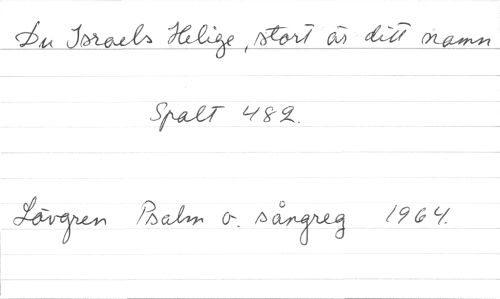 Du Israels Helige, stort är ditt namn
Spalt 482.
Lövgren Psalm o. sångreg 1964.